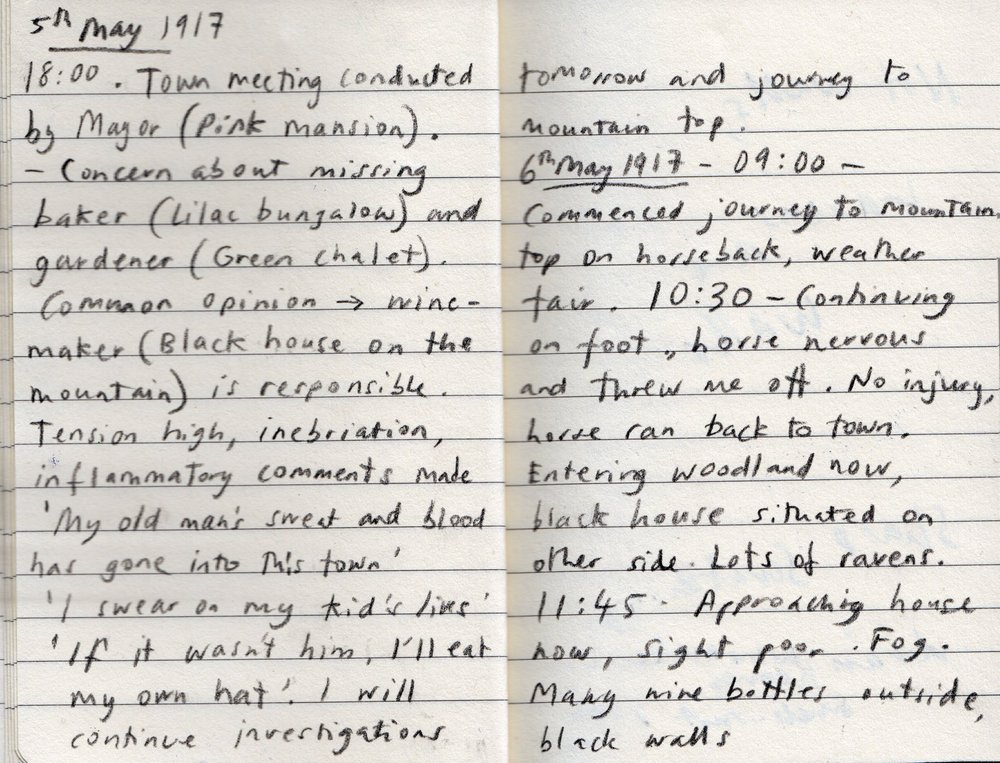 5th May 1917
18:00. Town meeting conducted
by Mayor (Pink mansion).
- Concern about missing
baker (Lilac bungalow) and
gardener (Green chalet).
Common opinion → wine-
maker (Black house on the
mountain) is responsible.
Tension high, inebriation,
inflammatory comments made
'My old man's sweat and blood
has gone into this town'
'I swear on my kid's lives'
'If it wasn't him, I'll eat
my own hat'. I will
continue investigations
tomorrow and journey to
mountain top.
6th May 1917 - 09:00 -
Commenced journey to mountain
top on horseback, weather
fair. 10:30 - Continuing
on foot, horse nervous
and threw me off. No injury,
horse ran back to town.
Entering woodland now,
black house situated on
other side. Lots of ravens.
11:45. Approaching house
now, sight poor. Fog.
Many wine bottles outside,
black walls